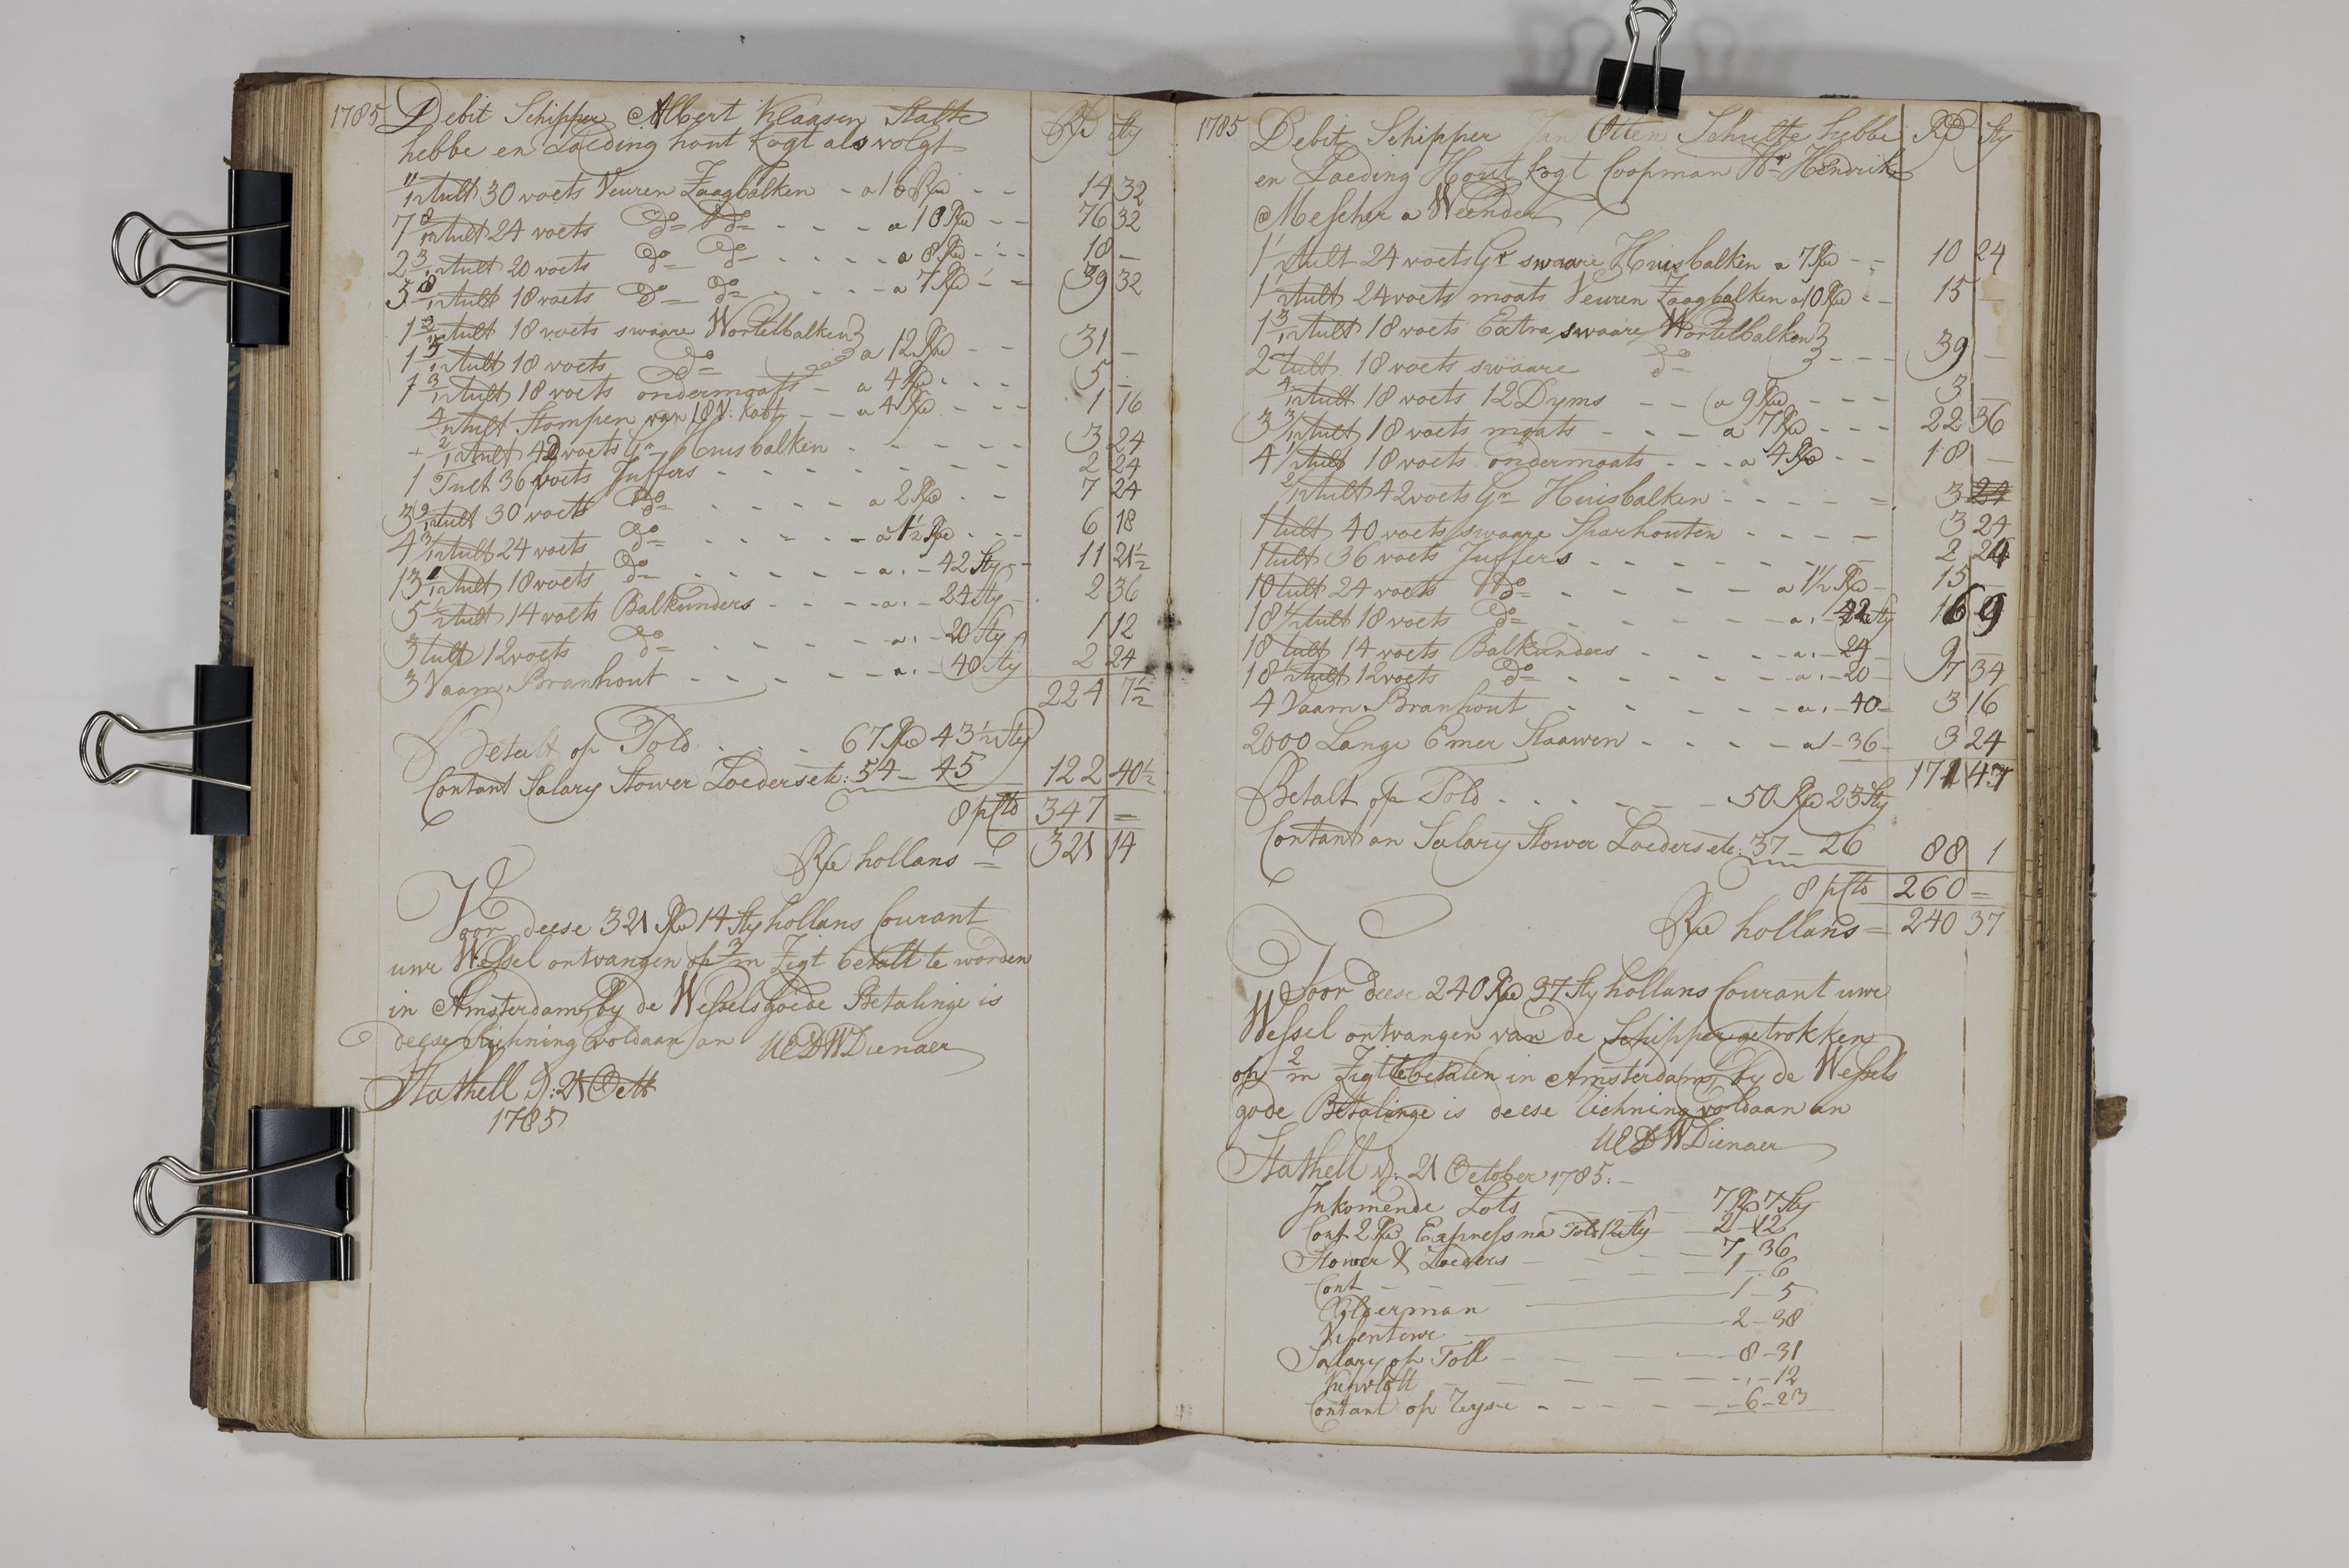 1785 Debit Schipper Albert Klaasen Stalte Rd sty
hebbe en Laeding hout kogt als volgt
11/12 tult 30 voets Veuren Zaagbalken - a 16 Rd - - 14 32
7 8/12 tult 24 voets do do - - - - a 10 Rd - - 76 32
2 3/12 tult 20 voets do do - - - - - a 8 Rd - - - 18 -
5 8/12 tult 18 voets do do - - - - - a 7 Rd - - 39 32
1 2/12 tult 18 voets swaare Wortelbalken
1 5/12 tult 18 voets do a 12 Rd - - 31 -
1 3/12 tult 18 voets ondermaats - a 4 Rd - - - 5 -
4/12 tult Stompen van 18 V: kabt - - a 4 Rd - - - 1 16
+ 2/12 tult 42 voets Gr Huisbalken - - - - - 3 24
1 Tult 36 voets Juffers - - - - - - - - 2 24
3 9/12 tult 30 voets do - - - - - a 2 Rd - - 7 24
4 3/12 tult 24 voets do - - - - - a 1½ Rd - - - 6 18
13 1/12 tult 18 voets do - - - - - - a . - 42 Sty - - 11 21½
5 ½ tult 14 voets Balkunders - - - - a . - 24 sty - 2 36
3 tult 12 voets do - - - - - a . - 20 Sty 1 12
3 Vaam Branhout - - - - - - a . - 40 Sty 2 24
224 7½
Betalt op Told . . . 67 Rd 43½ Sty
Contant Salary Stower Loeders etc: 54 - 45 122 40½
8 pCto 347 =
Rd hollans = 321 14
Voor deese 321 Rd 14 Sty hollans Courant
uwe Wessel ontvangen op 3/m Zigt betalt te worden
in Amsterdam, by de Wessels goede Betalinge is
deese Richning voldaan an UEDWDienaer
Stathell D: 21 Octt
1785
1785 Debit Schipper Jan Otten Schulte hebbe Rd Sty
en Laeding Hout kogt Coopman Hr Hendrik
Mescher a Weender
1 ½ tult 24 voets Gr swaare Huisbalken a 7 Rd - - 10 24
1 ½ tult 24 voets maats Veuren Zaagbalken a 10 Rd - - 15 -
1 3/12 tult 18 voets Extra swaare Wortelbalken
2 tult 18 voets swaare do - - - 39 -
4/12 tult 18 voets 12 Dyms - - a 9 Rd - - - 3 -
3 3/12 tult 18 voets maats - - - a 7 Rd - - - 22 36
4 ½ tult 18 voets ondermaats - - - a 4 Rd - - 18 -
2/12 tult 42 voets Gr Huisbalken - - - - = 3 24
1 tult 40 voets swaare Sparhouten - - - - 3 24
1 tult 36 voets Juffers - - - - - - - - 2 24
10 tult 24 voets do - - - - - a 1½ Rd - 15 -
18 ½ tult 18 voets do - - - - - - a . - 42 Sty 16 9
18 tult 14 voets Balkunders - - - - a . - 24 - 9 -
18 ½ tult 12 voets do - - - - - - a . - 20 - 7 34
4 Vaam Branhout - - - - - - a . - 40 - 3 16
2000 Lange Emer Staawen - - - - a 1 - 36 - 3 24
171 47
Betalt op Told . . . . . - - 50 Rd 23 Sty
Contant an Salary Stower Loeders etc: 37 - 26 88 1
8 pCto 260 =
Rd hollans = 240 37
Voor deese 240 Rd 37 Sty hollans Courant uwe
Wessel ontvangen van de Schipper getrokken
op 2/m Zigt te betalen in Amsterdam, by de Wessels
gode Betalinge is deese Richning voldaan an
UEDWDienaer
Stathell D: 21 October 1785: -
Inkomende Lots 7 Rd 7 Sty
Cont 2 Rd Express na Told 12 Sty 2 - 12
Stower & Loeders - - - - 7 - 36
Cont - - - - - 1 - 6
Olderman 1 - 5
2 - 38
Salary op Toll - - - - 8 - 31
- - - - - . - 12
Contant op - - - - - 6 - 23